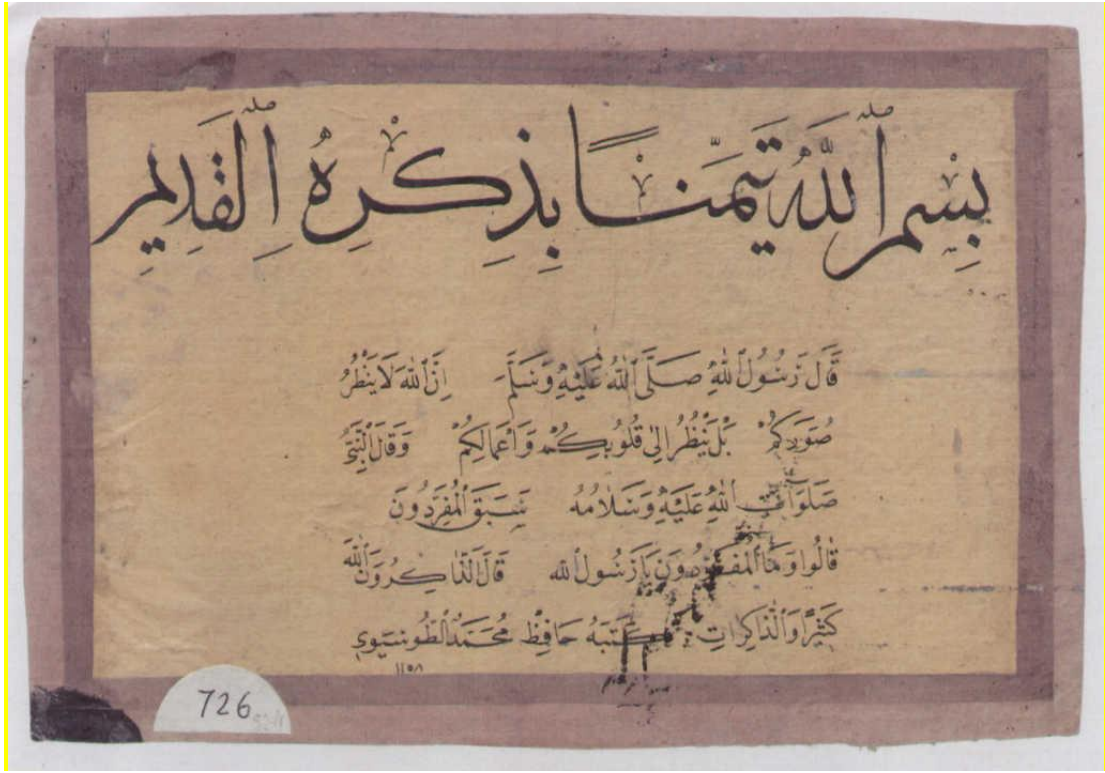 بِسْمِ ٱللَّهِ تَيَمُّنًا بِذِكْرِهِ ٱلْقَدِيمِ
قَالَ رَسُولُ ٱللهِ صَلَّى ٱللهُ عَلَيْهِ وَسَلَّمَ إِنَّ ٱللهَ لَا يَنْظُرُ
صُوَرَكُمْ بَلْ يَنْظُرُ إِلَى قُلُوبِكُمْ وَأَعْمَالِكُمْ وَقَالَ ٱلنَّبِيُّ
صَلَوَاتُ ٱللهِ عَلَيْهِ وَسَلَامُهُ سَبَقَ ٱلْمُفَرِّدُونَ
قَالُوا وَمَا ٱلْمُفَرِّدُونَ يَا رَسُولَ ٱلله قَالَ ٱلذَّاكِرُونَ ٱللهَ
كَثِيرًا وَٱلذَّاكِرَاتِ كَتَبَهُ حَافِظ مُحَمَّد
١١٥٨
726